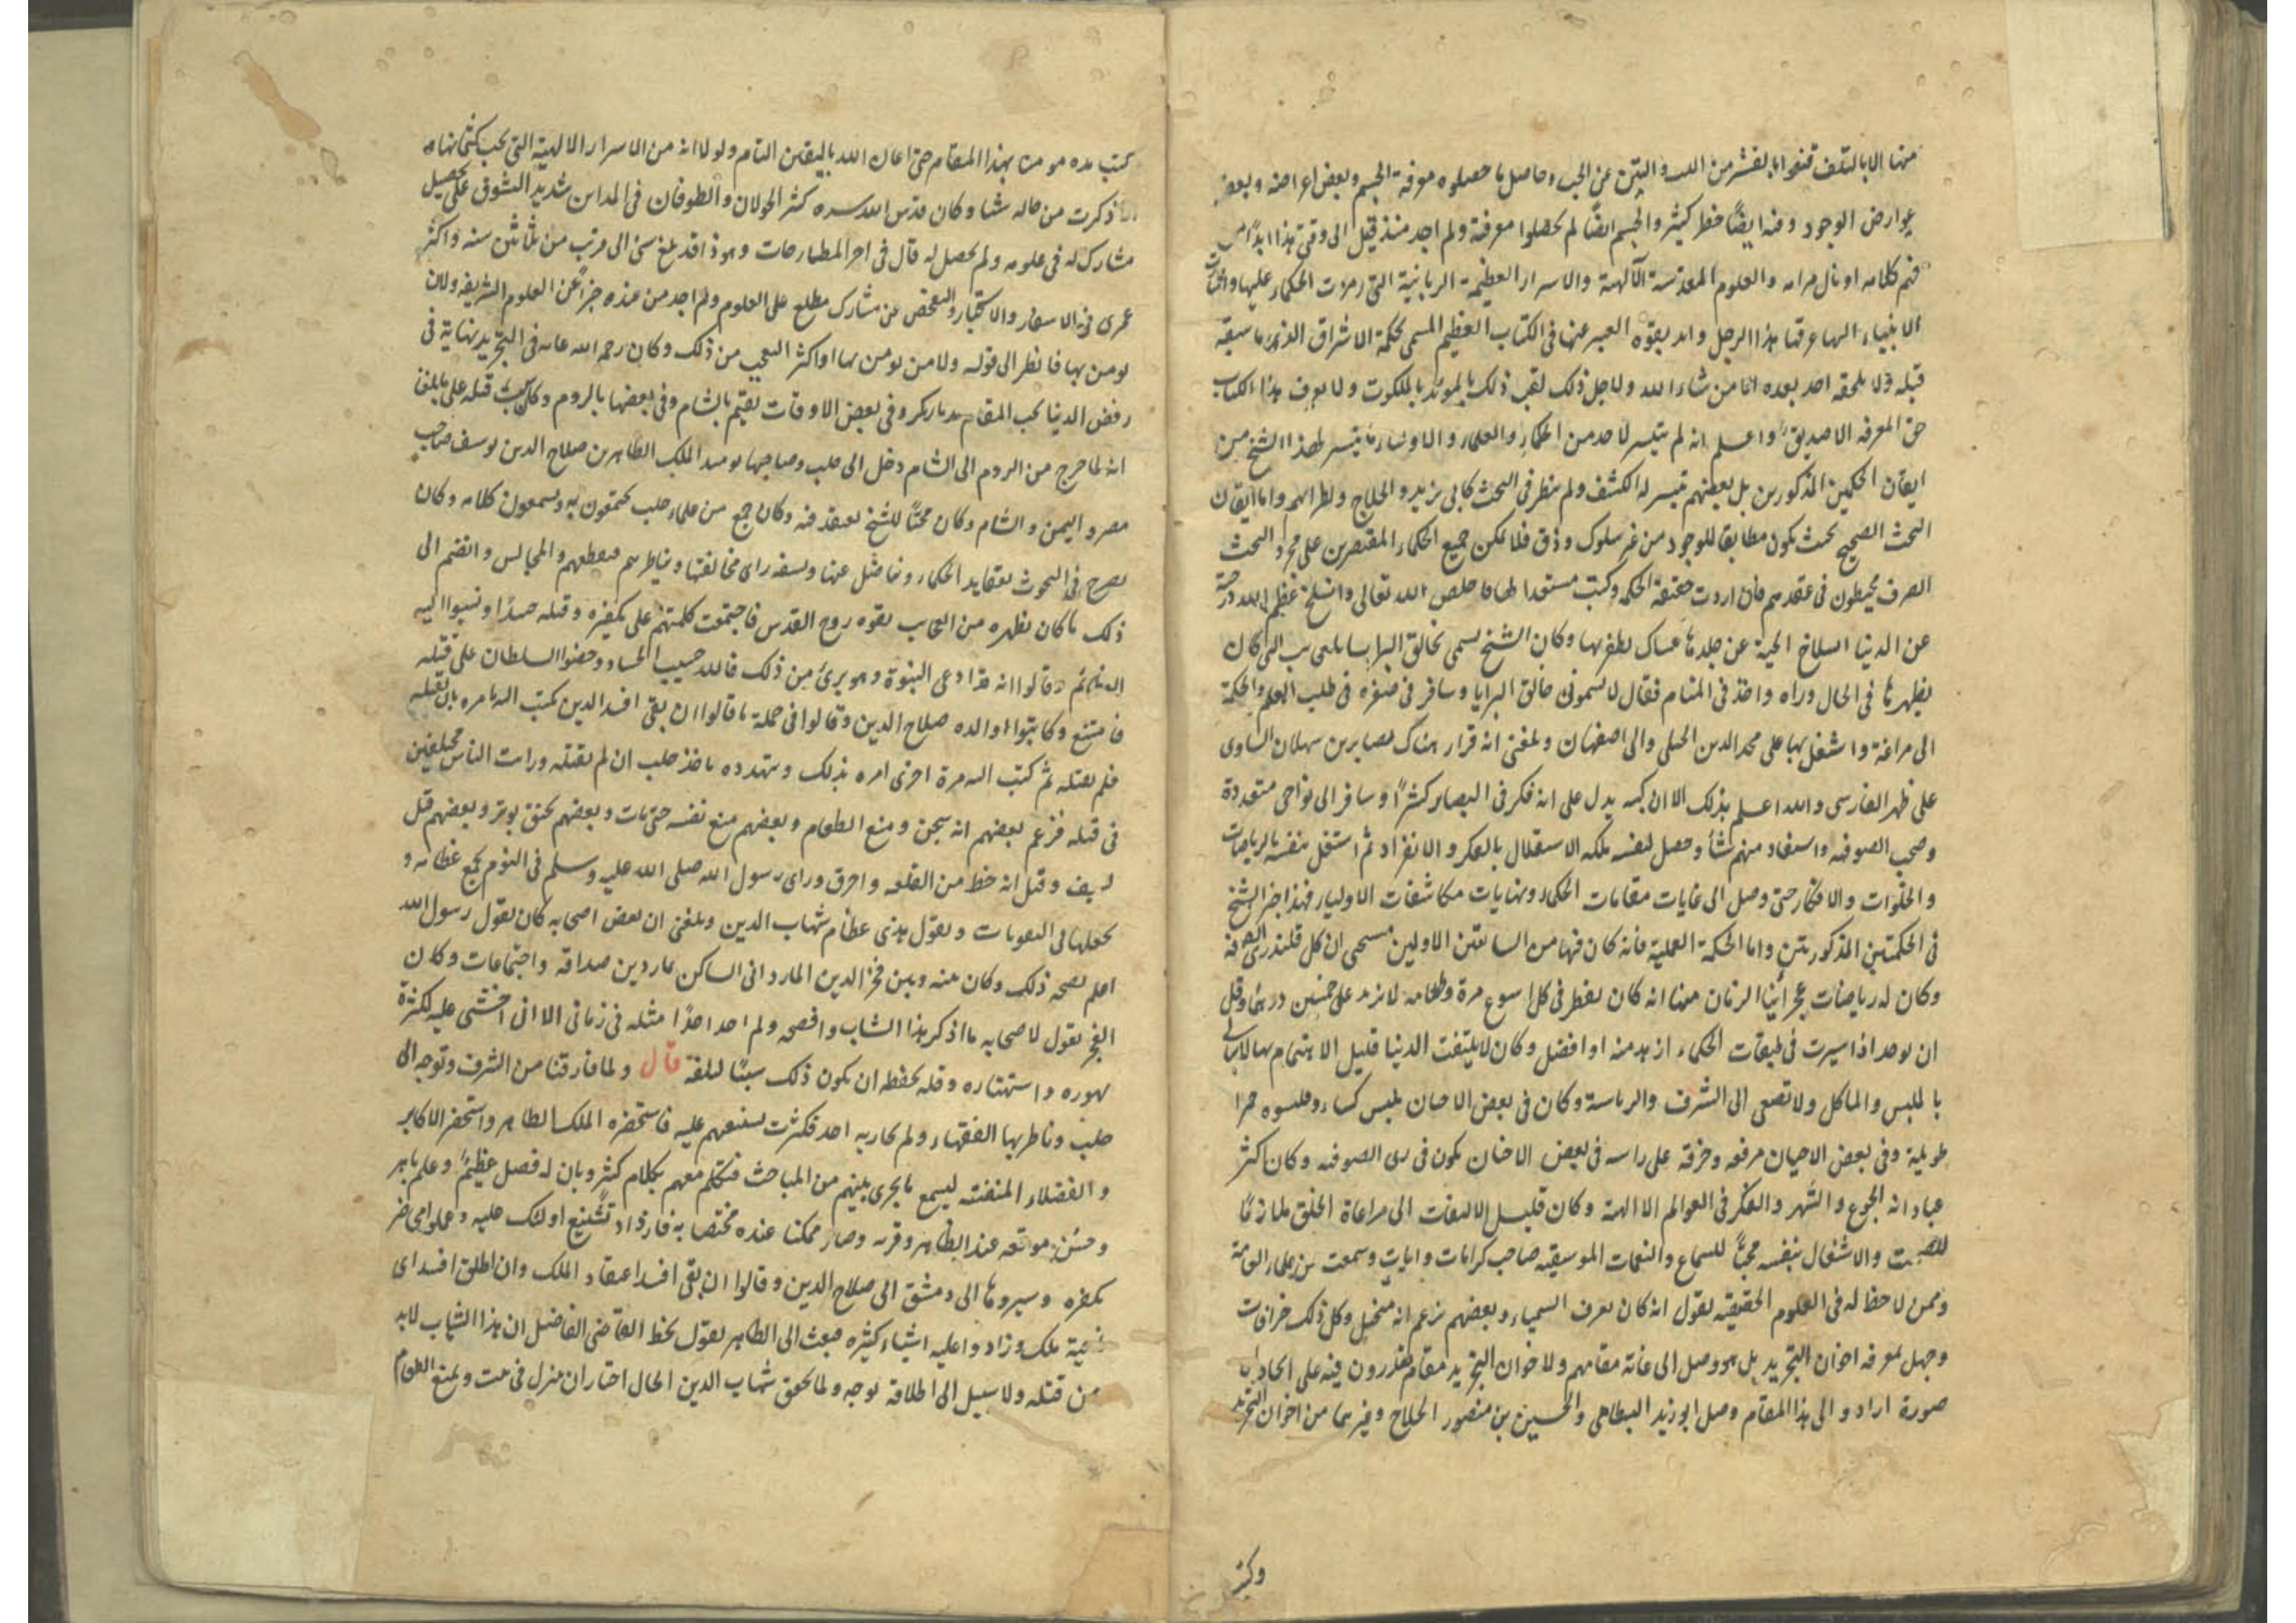 منها الا بالتلف قنعوا بالقشر من اللب والتبن عن الحب وحاصل ما حصلوه معرفة الجسم وبعض اعراضه وبعض
عوارض الوجود وفيه ايضًا خبط كثير والجسم ايضًا لم يحصلوا معرفته ولم اجد منذ قبل الى وقتى هذا ابدًا من
فهم كلامه او نال مرامه والعلوم المقدسة الآلهية والاسرار العظيمة الربانية التى رمزت الحكماء عليها واشارت
الانبياء اليها عرفها هذا الرجل وايد بقوة التعبير عنها فى الكتاب العظيم المسمى بحكمة الاشراق الذى ما سبقه
قبله ولا يلحقه احد بعده الا من شاء الله ولاجل ذلك لقب ذلك بالمويد بالملكوت ولا يعرف هذا الكتاب
حق المعرفة الا صديق واعلم انه لم يتيسر لاحد من الحكماء والعلماء والاولياء ما تيسر لهذا الشيخ من
اتقان الحكمتين المذكورتين بل بعضهم تيسر له الكشف ولم ينظر فى البحث كابى يزيد والحلاج ونظرائهم واما اتقان
البحث الصحيح بحيث يكون مطابقا للوجود من غير سلوك وذوق فلا يمكن جميع الحكماء المقتصرين على مجرد البحث
الصرف مخبطون فى عقدهم فان اردت حقيقة الحكمة وكنت مستعدا لها فاخلص الله تعالى وانسلخ
عن الدنيا انسلاخ الحية عن جلدها عساك تظفر بها وكان الشيخ يسمى بخالق البرايا للعجايب التى كان
يظهرها فى الحال وراه واحد فى المنام فقال لا تسمونى خالق البرايا وسافر فى صغره فى طلب العلم والحكمة
الى مراغة واشتغل بها على مجد الدين الجيلى والى اصفهان وبلغنى انه قرا هناك بصاير بن سهلان الساوى
على ظهر الفارسى والله اعلم بذلك الا ان كتبه يدل على انه فكر فى البصاير كثيرًا وسافر الى نواحى متعددة
وصحب الصوفية واستفاد منهم شيأ وحصل لنفسه ملكة الاستقلال بالفكر والانفراد ثم اشتغل بنفسه بالرياضات
والخلوات والافكار حتى وصل الى غايات مقامات الحكماء ونهايات مكاشفات الاولياء فهذا خبر الشيخ
فى الحكمتين المذكورتين واما الحكمة العملية فانه كان فيها من السابقين الاولين مسيحى الشكل قلندرى الصفة
وكان له رياضات عجز ابنا الزمان عنها انه كان يفطر فى كل اسبوع مرة وطعامه لا يزيد على خمسين درهما وقل
ان يوجد اذا سبرت فى طبقات الحكماء ازهد منه او افضل وكان لا يلتفت الدنيا قليل الاهتمام بها لا يبالى
بالملبس والماكل ولا تصغى الى الشرف والرياسة وكان فى بعض الاحيان يلبس كساء وقلنسوه حمرا
طويلة وفى بعض الاحيان مرقعه وخرقة على راسه فى بعض الاحيان يكون فى زى الصوفيه وكان اكثر
عباداته الجوع والسهر والفكر فى العوالم الالهية وكان قليل الالتفات الى مراعاة الخلق ملازمًا
للصمت والاشتغال بنفسه محبًا للسماع والنغمات الموسيقيه صاحب كرامات وايات وسمعت من علماء العامة
وممن لا حظ له فى العلوم الحقيقيه يقول انه كان يعرف السيمياء وبعضهم يزعم انه متخيل وكل ذلك خرافات
وجهل بمعرفه اخوان التجريد بل هو وصل الى غاية مقامهم ولاخوان التجريد مقام يقدرون فيه على ايجاد اى
صورة ارادوا الى هذا المقام وصل ابو يزيد البسطامى والحسين بن منصور الحلاج وغيرهما من اخوان التجريد
وكنت
كنت مده مومنا بهذا المقام حتى اعان الله باليقين التام ولولا انه من الاسرار الالهية التى يجب كتمانها
ذكرت من حاله شيا وكان قدس الله سره كثير الجولان والطوفان فى المداين شديد الشوق على تحصيل
مشارك له فى علومه ولم يحصل له قال فى اخر المطارحات وهو ذا قد بلغ سنى الى قريب من ثلثين سنه واكثر
عمرى فى الاسفار والاستخبار والتفحص عن مشارك مطلع على العلوم ولم اجد من عنده خبرًا عن العلوم الشريفه ولا من
يومن بها فانظر الى قوله ولا من يومن بها او اكثر التعجب من ذلك وكان رحمه الله غايه فى التجريد نهاية فى
رفض الدنيا يحب المقام بديار بكر وفى بعض الاوقات يقيم بالشام وفى بعضها بالروم وكان سبب قتله على ما بلغنا
انه لما خرج من الروم الى الشام دخل الى حلب وصاحبها يوميذ الملك الظاهر بن صلاح الدين يوسف صاحب
مصر واليمن والشام وكان محبًا للشيخ يعتقد فيه وكان جمع من علماء حلب يجتمعون به ويسمعون كلامه وكان
يصرح فى البحوث بعقايد الحكماء ويناضل عنها ويسفه راى مخالفتها ويناظرهم فيقطعهم والمجالس وانضم الى
ذلك ما كان يظهره من العجايب بقوه روح القدس فاجتمعت كلمتهم على تكفيره وقتله حسدًا ونسبوا اليه
العظائم وقالوا انه قد ادعى النبوة وهو برئ من ذلك فالله حسيب الحساد وحضوا السلطان على قتله
فامتنع وكاتبوا والده صلاح الدين وقالوا فى جملة ما قالوا ان بقى افسد الدين كتب اليه يامره بان يقتله
فلم يقتله ثم كتب اليه مرة اخرى امره بذلك ويتهدده باخذ حلب ان لم يقتله ورايت الناس مختلفين
فى قتله فزعم بعضهم انه سجن ومنع الطعام وبعضهم منع نفسه حتى مات وبعضهم بخنق بوتر وبعضهم قتل
بسيف وقيل انه حط من القلعه واحرق وراى رسول الله صلى الله عليه وسلم فى النوم يجمع عظامه و
يجعلها فى البقوبات ويقول هذى عظام شهاب الدين وبلغنى ان بعض اصحابه كان يقول رسول الله
اعلم بصحه ذلك وكان بينه وبين فخر الدين الماردانى الساكن بماردين صداقه واجتماعات وكان
الفخر يقول لاصحابه ما اذكى هذا الشاب وافصحه ولم اجد احدًا مثله فى زمانى الا انى اخشى عليه لكثرة
تهوره واستهتاره وقله تحفظه ان يكون ذلك سببًا لتلفه قال ولما فارقنا من الشرق وتوجه الى
حلب وناظر بها الفقهاء ولم يجاريه احد فكثرت تشنيعهم عليه فاستحضره الملك الظاهر واستحضر الاكابر
والفضلاء المتفننه ليسمع ما يجرى بينهم من المباحث فتكلم معهم بكلام كثير وبان له فضل عظيم وعلم باهر
وحسن موقعه عند الظاهر وقربه وصار مكينا عنده مختصا به فازداد تشنيع اولئك عليه وعملوا محاضر
بكفره وسيروها الى دمشق الى صلاح الدين وقالوا ان بقى افسد اعتقاد الملك وان اطلق افسد اى
ناحية ملك وزادوا عليه اشياء كثيره فبعث الى الظاهر يقول بخط القاضى الفاضل ان هذا الشاب لابد
من قتله ولا سبيل الى اطلاقه بوجه ولما تحقق شهاب الدين الحال اختار ان منزل فى بيت ويمنع الطعام